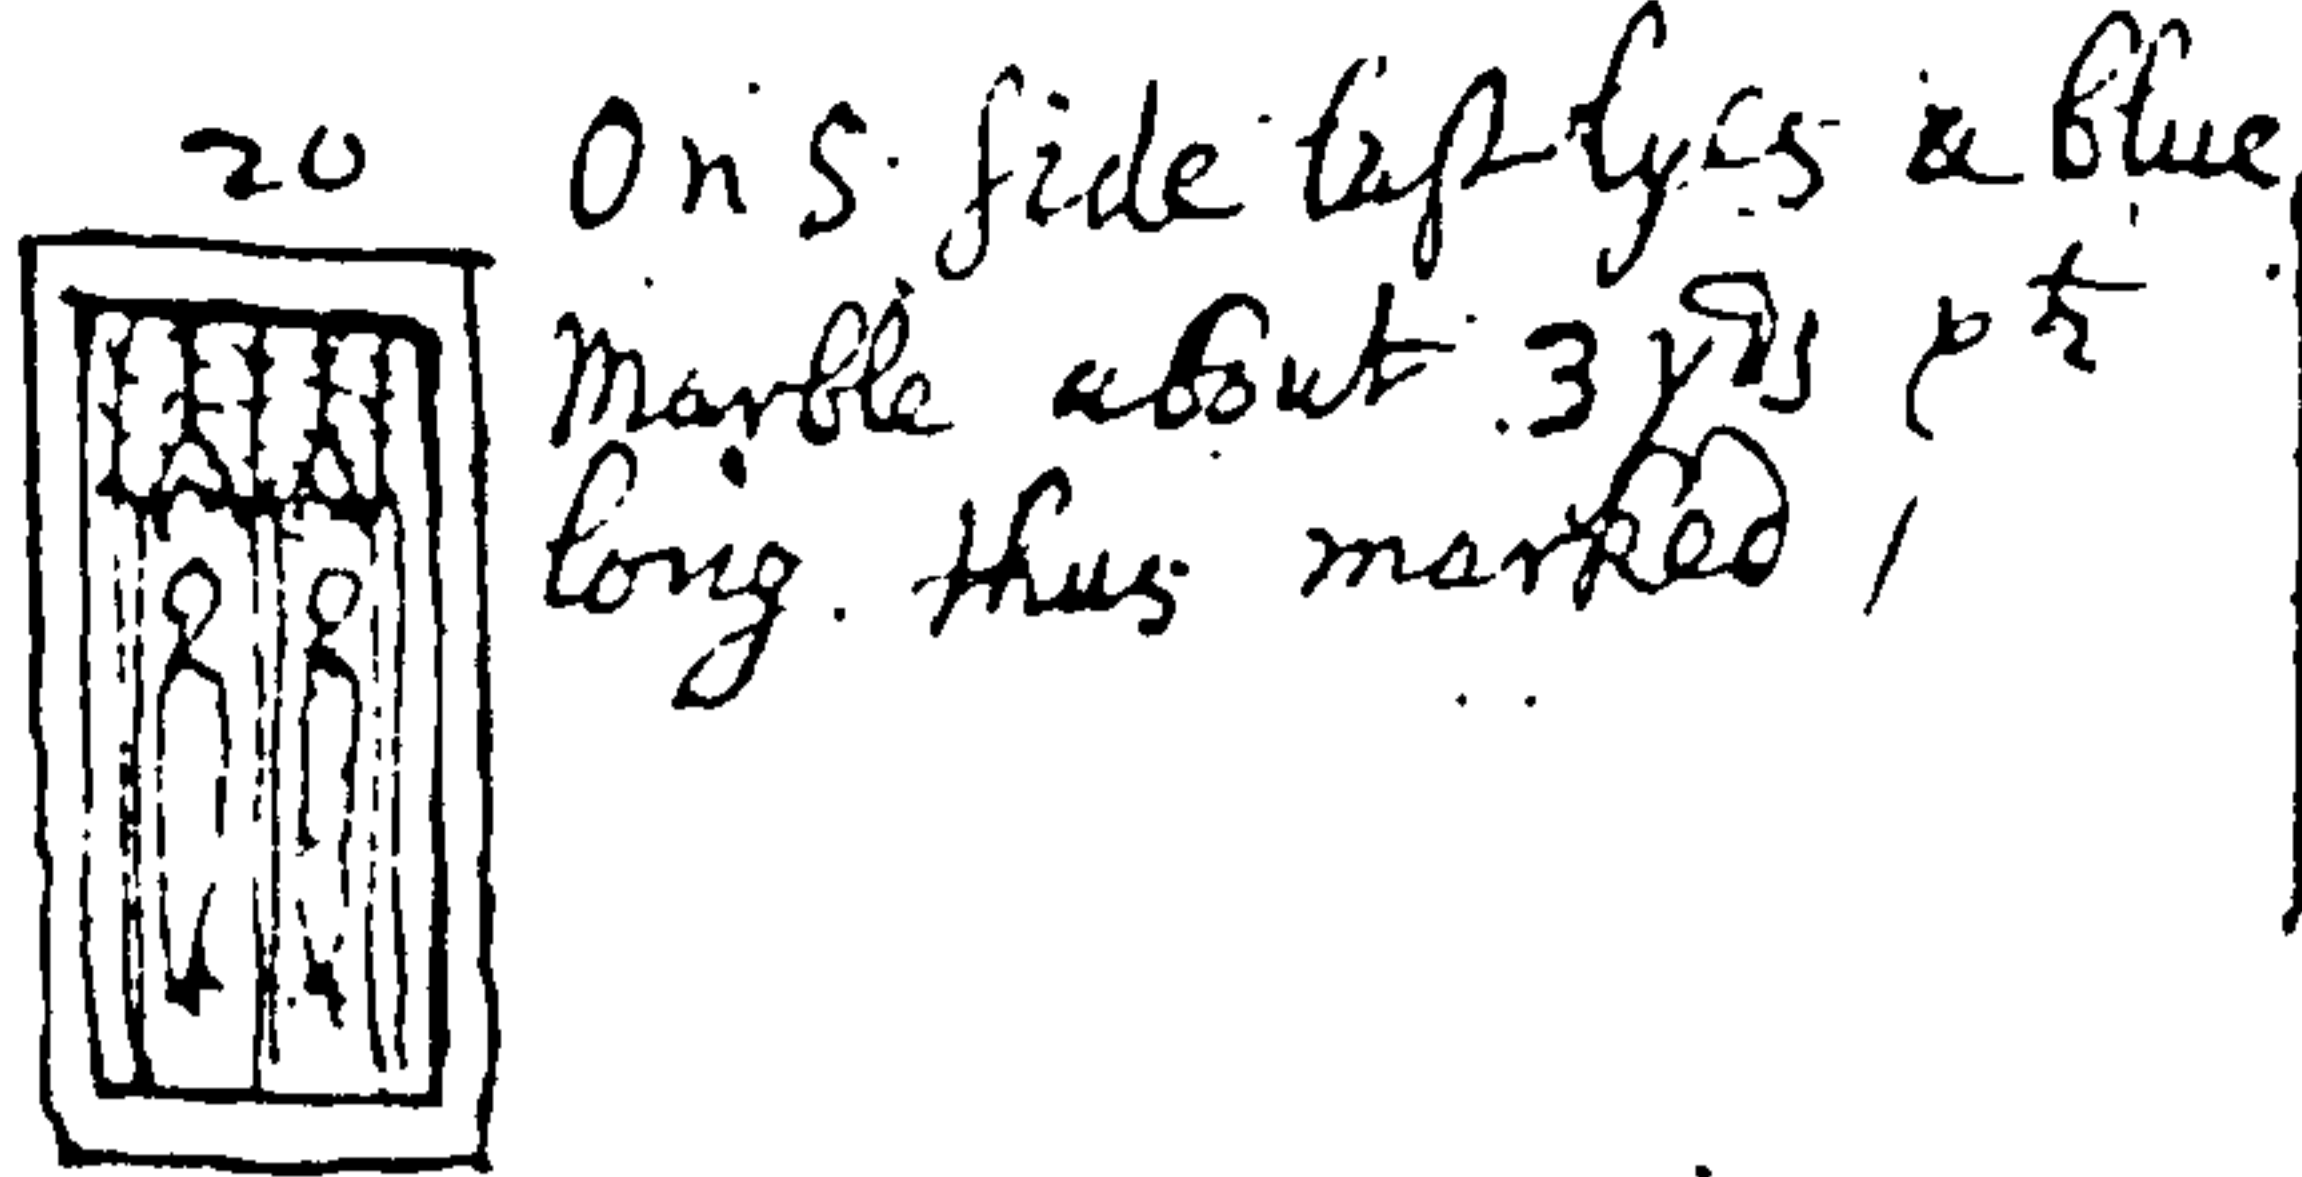 20
On S. side last lyes a blue
Marble about 3 yds & ½
long. thus marked /